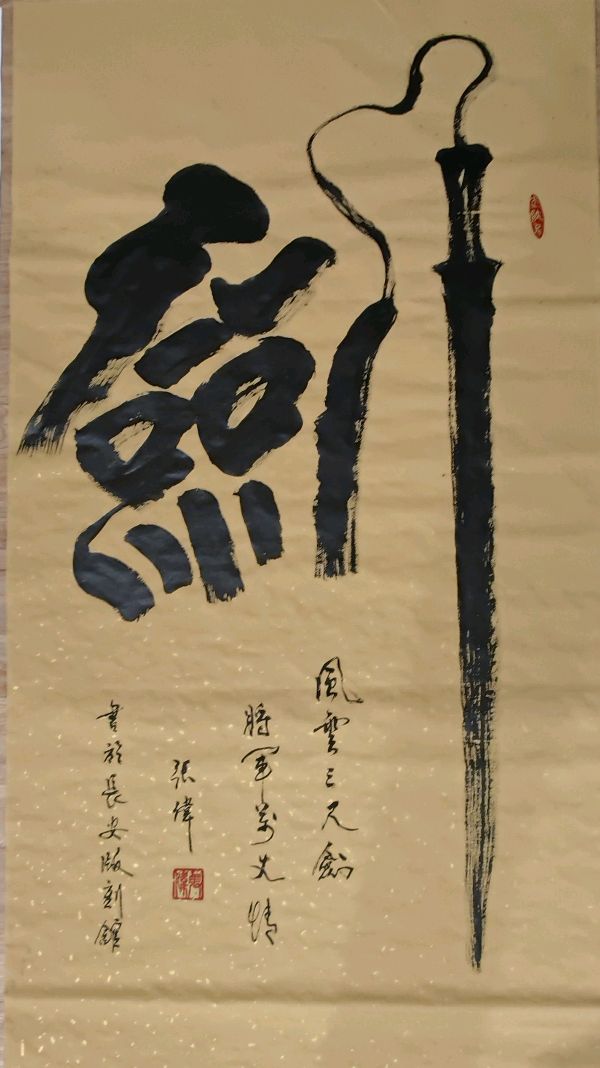 劍
風雲三尺劍
將軍萬丈情
張偉
書於長安版刻館